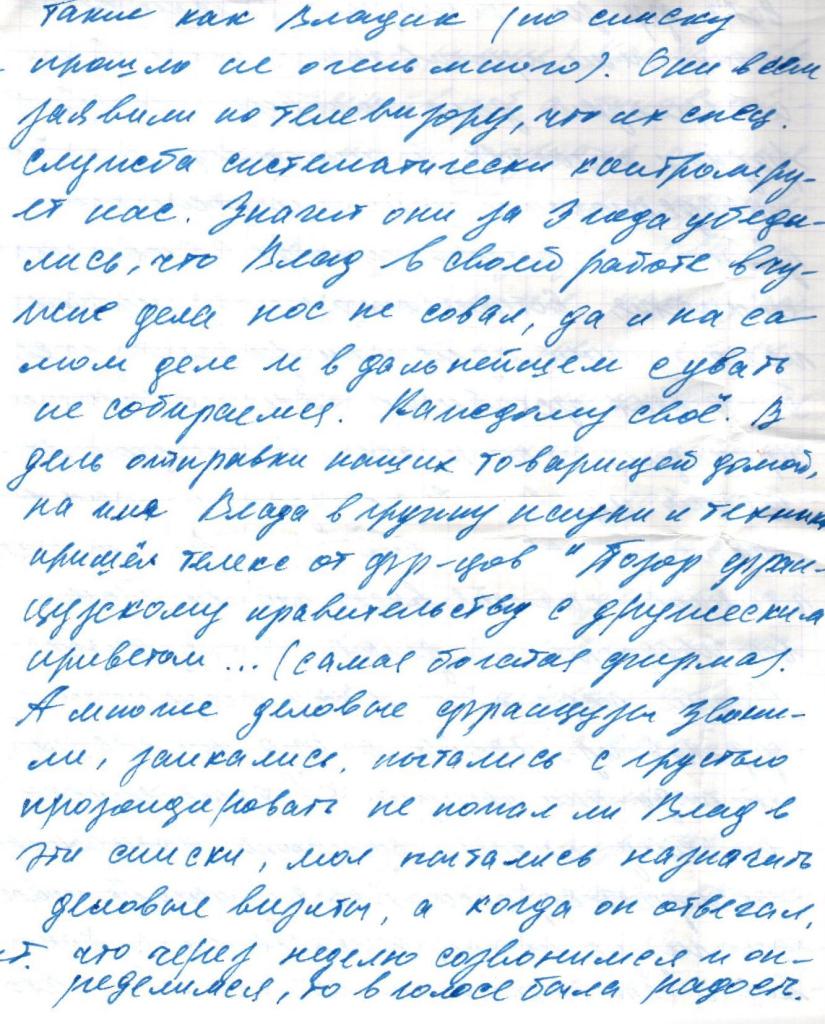 такие как Владик (по списку
прошло не очень много). Они всем
заявили по телевизору, что их спец.
служба систематически контролиру-
ет нас. Значит они за 3 года убеди-
лись, что Влад в своей работе в чу-
жие дела нос не совал, да и на са-
мом деле и в дальнейшем сувать
не собираемся. Каждому своё. В
день отправки наших товарищей домой,
на имя Влада в группу науки и техники
пришёл телекс от фр-цов "Позор фран-
цузскому правительству с дружеским
приветом ... (самая богатая фирма).
А многие деловые французы звони-
ли, заикались, пытались с грустью
прозондировать не попал ли Влад в
эти списки, мол пытались назначить
деловые визиты, а когда он отвечал,
что через неделю созвонимся и оп-
ределимся, то в голосе была радость.